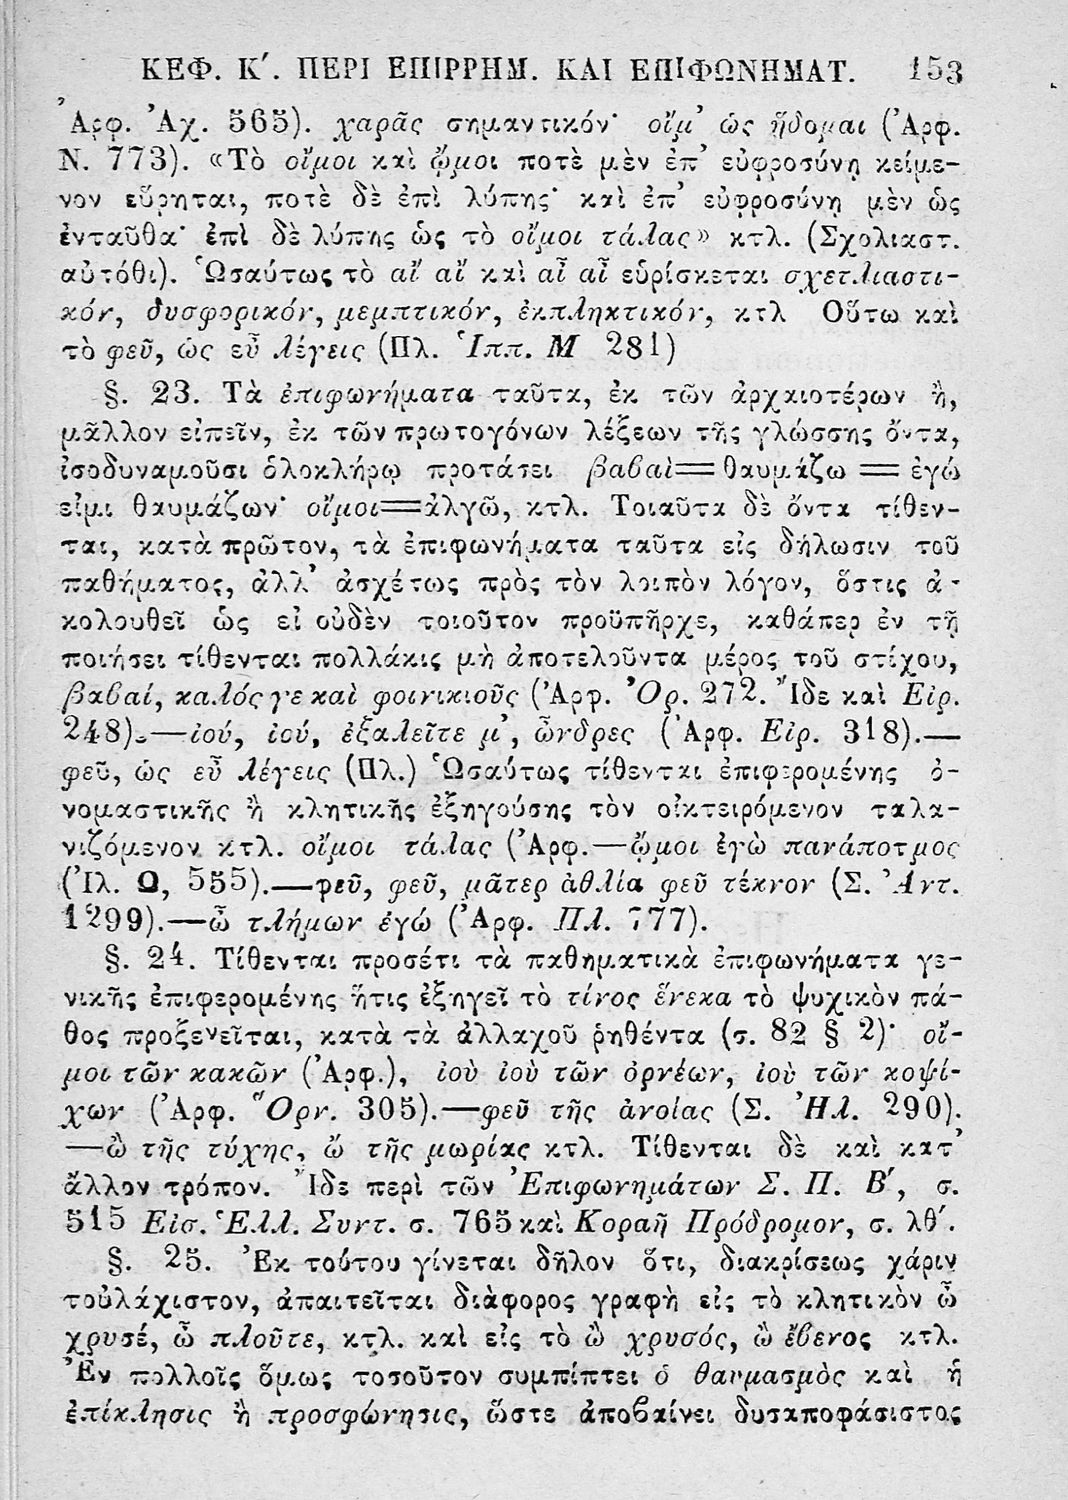 ΚΕΦ. Κʹ. ΠΕΡΙ ΕΠΙΡΡΗΜ. ΚΑΙ ΕΠΙΦΩΝΗΜΑΤ. 153
Ἀρφ. Ἀχ. 565). χαρᾶς σημαντικόν· οἴμ’ ὡς ἥδομαι (Ἀρφ.
Ν. 773). «Τὸ οἴμοι καὶ ᾤμοι ποτὲ μὲν ἐπ’ εὐφροσύνῃ κείμε-
νον εὕρηται, ποτὲ δὲ ἐπὶ λύπης· καὶ ἐπ’ εὐφροσύνῃ μὲν ὡς
ἐνταῦθα· ἐπὶ δὲ λύπης ὡς τὸ οἴμοι τάλας» κτλ. (Σχολιαστ.
αὐτόθι). Ὡσαύτως τὸ αἴ αἴ καὶ αἶ αἶ εὑρίσκεται σχετλιαστι-
κόν, δυσφορικόν, μεμπτικόν, ἐκπληκτικόν, κτλ Οὕτω καὶ
τὸ φεῦ, ὡς εὖ λέγεις (Πλ. Ἱππ. Μ 281)
§. 23. Τὰ ἐπιφωνήματα ταῦτα, ἐκ τῶν ἀρχαιοτέρων ἢ,
μᾶλλον εἰπεῖν, ἐκ τῶν πρωτογόνων λέξεων τῆς γλώσσης ὄντα,
ἰσοδυναμοῦσι ὁλοκλήρῳ προτάσει βαβαὶ=θαυμάζω = ἐγώ
εἰμι θαυμάζων· οἴμοι=ἀλγῶ, κτλ. Τοιαῦτα δὲ ὄντα τίθεν-
ται, κατὰ πρῶτον, τὰ ἐπιφωνήματα ταῦτα εἰς δήλωσιν τοῦ
παθήματος, ἀλλ’ ἀσχέτως πρὸς τὸν λοιπὸν λόγον, ὅστις ἀ-
κολουθεῖ ὡς εἰ οὐδὲν τοιοῦτον προϋπῆρχε, καθάπερ ἐν τῇ
ποιήσει τίθενται πολλάκις μὴ ἀποτελοῦντα μέρος τοῦ στίχου,
βαβαί, καλός γε καὶ φοινικιοῦς (Ἀρφ. Ὀρ. 272. Ἴδε καὶ Εἰρ.
248).—ἰού, ἰού, ἐξαλεῖτε μ’, ὦνδρες (Ἀρφ. Εἰρ. 318).—
φεῦ, ὡς εὖ λέγεις (Πλ.) Ὡσαύτως τίθενται ἐπιφερομένης ὀ-
νομαστικῆς ἢ κλητικῆς ἐξηγούσης τὸν οἰκτειρόμενον ταλα-
νιζόμενον κτλ. οἴμοι τάλας (Ἀρφ.—ᾤμοι ἐγὼ πανάποτμος
(Ἰλ. Ω, 555).—φεῦ, φεῦ, μᾶτερ ἀθλία φεῦ τέκνον (Σ. Ἀντ.
1299).—ὦ τλήμων ἐγώ (Ἀρφ. Πλ. 777).
§. 24. Τίθενται προσέτι τὰ παθηματικὰ ἐπιφωνήματα γε-
νικῆς ἐπιφερομένης ἥτις ἐξηγεῖ τὸ τίνος ἕνεκα τὸ ψυχικὸν πά-
θος προξενεῖται, κατὰ τὰ ἀλλαχοῦ ῥηθέντα (σ. 82 § 2)· οἴ-
μοι τῶν κακῶν (Ἀρφ.), ἰοὺ ἰοὺ τῶν ὀρνέων, ἰοὺ τῶν κοψί-
χων (Ἀρφ. Ὄρν. 305).—φεῦ τῆς ἀνοίας (Σ. Ἠλ. 290).
—ὢ τῆς τύχης, ὢ τῆς μωρίας κτλ. Τίθενται δὲ καὶ κατ’
ἄλλον τρόπον. Ἴδε περὶ τῶν Ἐπιφωνημάτων Σ. Π. Βʹ, σ.
515 Εἰσ. Ἑλλ. Συντ. σ. 765 καὶ Κοραῆ Πρόδρομον, σ. λθʹ.
§. 25. Ἐκ τούτου γίνεται δῆλον ὅτι, διακρίσεως χάριν
τοὐλάχιστον, ἀπαιτεῖται διάφορος γραφὴ εἰς τὸ κλητικὸν ὦ
χρυσέ, ὦ πλοῦτε, κτλ. καὶ εἰς τὸ ὢ χρυσός, ὢ ἔβενος κτλ.
Ἐν πολλοῖς ὅμως τοσοῦτον συμπίπτει ὁ θαυμασμὸς καὶ ἡ
ἐπίκλησις ἢ προσφώνησις, ὥστε ἀποβαίνει δυσαποφάσιστος